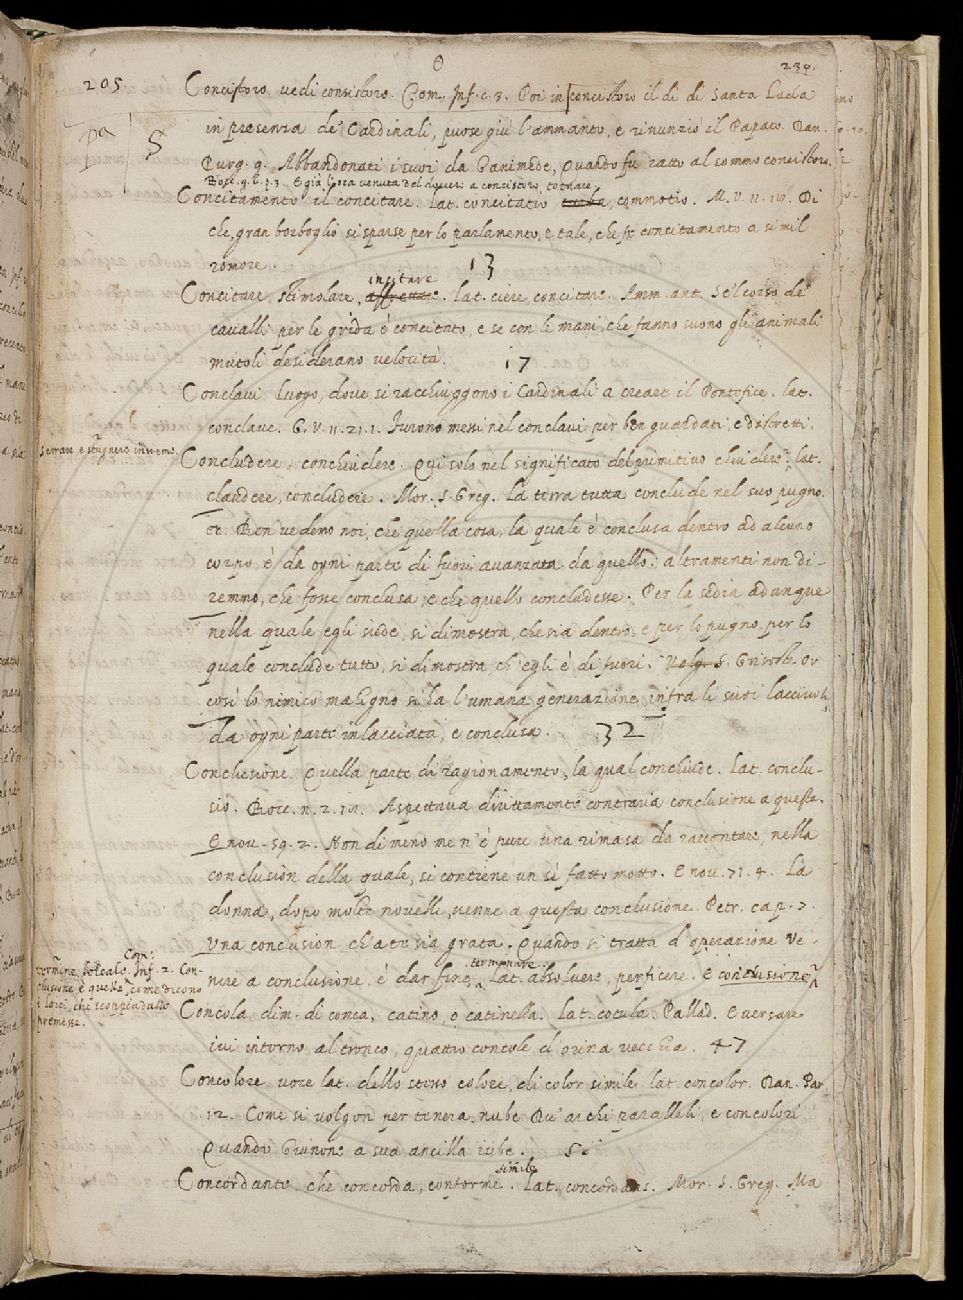 205
239.
Concistoro vedi consistoro. Com. Inf. c. 3. Poi in concistoro il dì di Santa Lucia
in presenza de' Cardinali, puose giù l'ammanto, e rinunziò il Papato. Dan.
Purg. 9. Abbandonati i suoi da Ganimede, Quando fu ratto al sommo concistoro.
Bocc. g. 6. p. 3. E già l'ora venuta del dovere a concistoro tornare
Concitamento il concitare. Lat. concitatio turba, commotio. M. V. 11. Di
che, gran borboglio si sparse per lo parlamento, e tale, che fe concitamento a simil
romore. 13
incitare
Concitare, stimolare, affrettare. lat. ciere, concitare. Amm. ant. Se'l corso de'
cavalli per le grida è concitato, e se con le mani, che fanno suono gli animali
mutoli desiderano velocità. 17
Conclavi Luogo, dove si racchiuggono i Cardinali a creare il Pontefice. lat.
conclave. G. V. 11. 21. 1. Furono messi nel conclavi per ben guardati, e distretti.
serrare, e stignere insieme.
Concludere. conchiudere. Qui solo nel significato del primitivo chiudere. lat.
claudere, concludere. Mor. S. Greg. La terra tutta conclude nel suo pugno.
et. Ben vedemo noi, che quella cosa, la quale è conclusa dentro ad alcuno
corpo è da ogni parte di fuori avanzata da quello: altramenti non di-
remmo, che fosse conclusa, e che quello concludesse. Per la sedia adunque
nella quale egli siede, si dimostra, che sia dentro, e per lo pugno, per lo
quale conclude tutto, si dimostra ch'egli è di fuori. Volg. S. Grisost. Or
così lo nemico maligno si dà l'umana generazione infra li suoi lacciuoli
da ogni parte inlacciata, e conclusa. 32
Conclusione. Quella parte di ragionamento, la qual conchiude. Lat. conclu-
sio. Bocc. n. 2. Aspettava dirittamente contraria conclusione a questa.
E nov. 59. 2. Non di meno me n'è pure una rimasa da raccontare, nella
conclusion della quale, si contiene un sì fatto motto. E nov. 71. 4. La
donna, dopo molte novelle, venne a questa conclusione. Petr. cap. 7.
Una conclusion ch'a te sia grata. Quando si tratta d'operazione Ve-
terminare
nire a conclusione, è dar fine, Lat. absolvere, perficere. E conclusione
Com.
termine loicale. Inf. 2. Con-
clusione è quella, come dicono
i loici, che scoppia dalle
premesse.
Concola dim. di conca, catino, o catinella. Lat. cotula. Pallad. E versare
ivi intorno al tronco, quattro concole d'orina vecchia. 47
Concolore voce lat. dello stesso colore, di color simile. lat. concolor. Dan. Par.
12. Come si volgon per tenera nube Du' archi paralleli, e concolori
Quando Giunone a sua ancilla iube.
simile
Concordante. che concorda, conforme. Lat. concordans. Mor. S. Greg. Ma